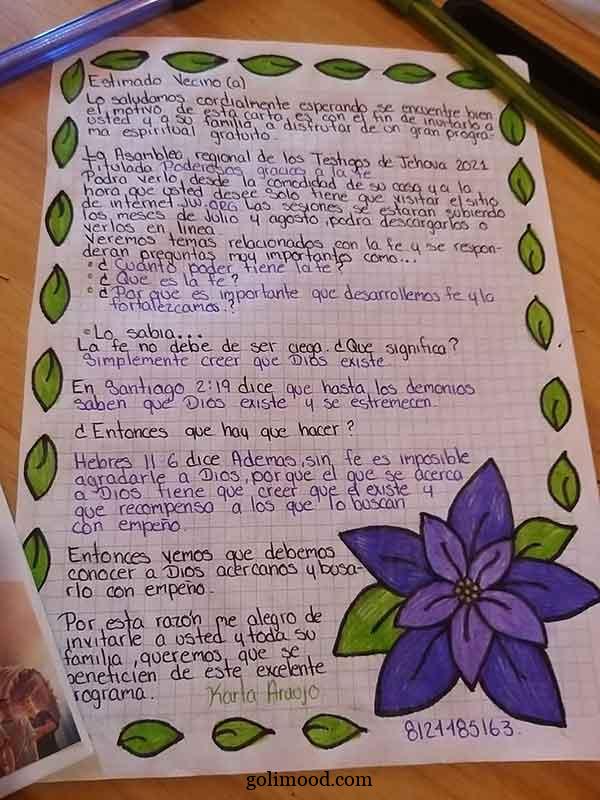 Estimado Vecino (a)
Lo saludamos cordialmente esperando se encuentre bien
el motivo de esta carta es con el fin de invitarlo a
usted y a su familia, a disfrutar de un gran progra-
ma espiritual gratuito.
La Asamblea, regional de los Testigos de Jehova 2021
Titulado Poderosos gracias a la fe
Podra verlo, desde la comodidad de su casa y a la
hora que usted desee Solo tiene que visitar el sitio
de internet JW.ORG Las sesiones se estaran subiendo
los meses de Julio y agosto, podra descargarlos o
verlos en linea.
Veremos temas relacionados con la fe y se respon-
deran preguntas muy importantes como...
° ¿ Cuanto poder tiene la fe?
° ¿ Que es la fe?
° ¿ Por que es importante que desarrollemos fe y la
fortalezcamos.?
° Lo sabia...
La fe no debe de ser ciega. ¿Que significa?
Simplemente creer que Dios existe
En Santiago 2:19 dice que hasta los demonios
saben que Dios existe y se estremecen.
¿ Entonces que hay que hacer?
Hebres 11 6 dice Ademas, sin fe es imposible
agradarle a Dios, porque el que se acerca
a Dios tiene que creer que el existe y
que recompensa a los que lo buscan
con empeño.
Entonces vemos que debemos
conocer a Dios acercanos y busa-
rlo con empeño.
Por esta razón me alegro de
invitarle a usted y toda su
familia, queremos que se
beneficien de este excelente
rograma. Karla Araujo
8121185163.
golimood.com